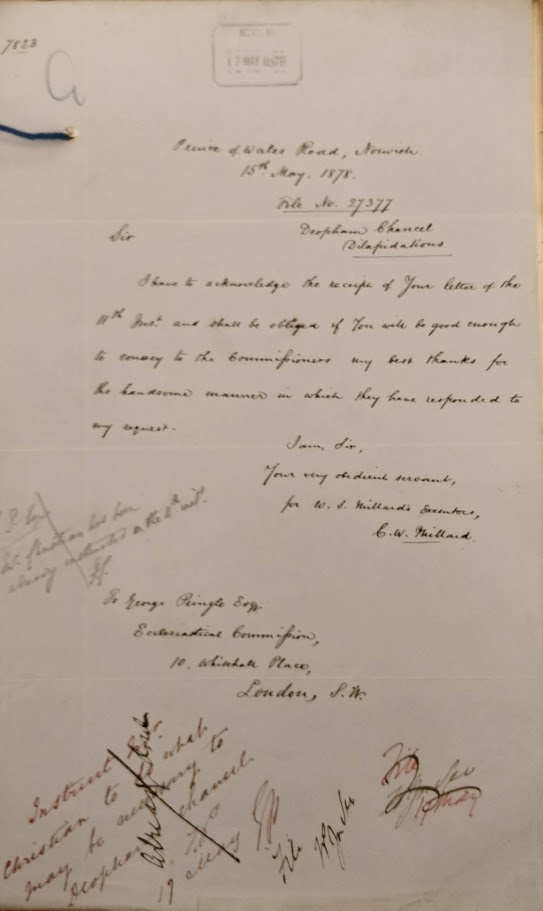 7823
17 MAY 1878
Prince of Wales Road, Norwich.
15th May. 1878.
File No. 27377
Deopham Chancel
Dilapidations
Sir
I have to acknowledge the receipt of Your letter of the
11th Inst. and shall be obliged if You will be good enough
to convey to the Commissioners my best thanks for
the handsome manner in which they have responded to
my request.
I am, Sir,
Your very obedient servant,
for W. S. Millard's Executors,
C. W. Millard.
Mr. Christian has been
already instructed on the
To George Pringle Esqr.
Ecclesiastical Commission,
10. Whitehall Place,
London, S.W.
Instruct
Christian to what
may be necessary to
Deopham chancel.
17 May
File
File
May